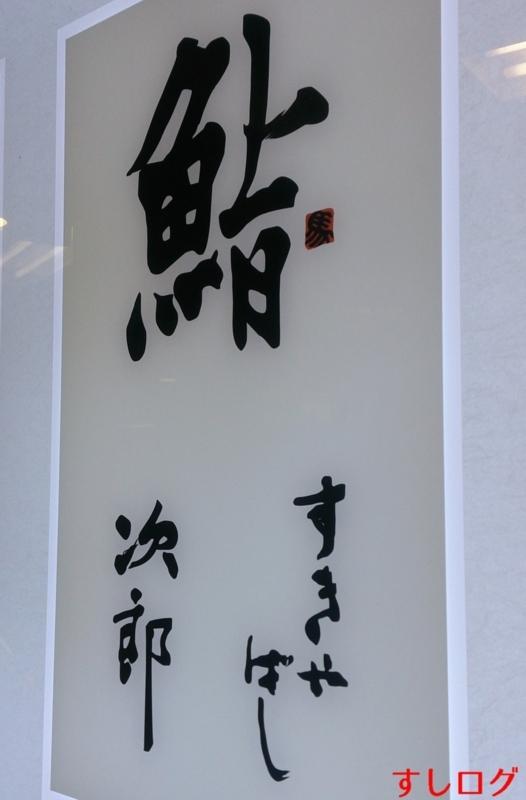 鮨
馬
すきや
ばし
次郎
すしログ